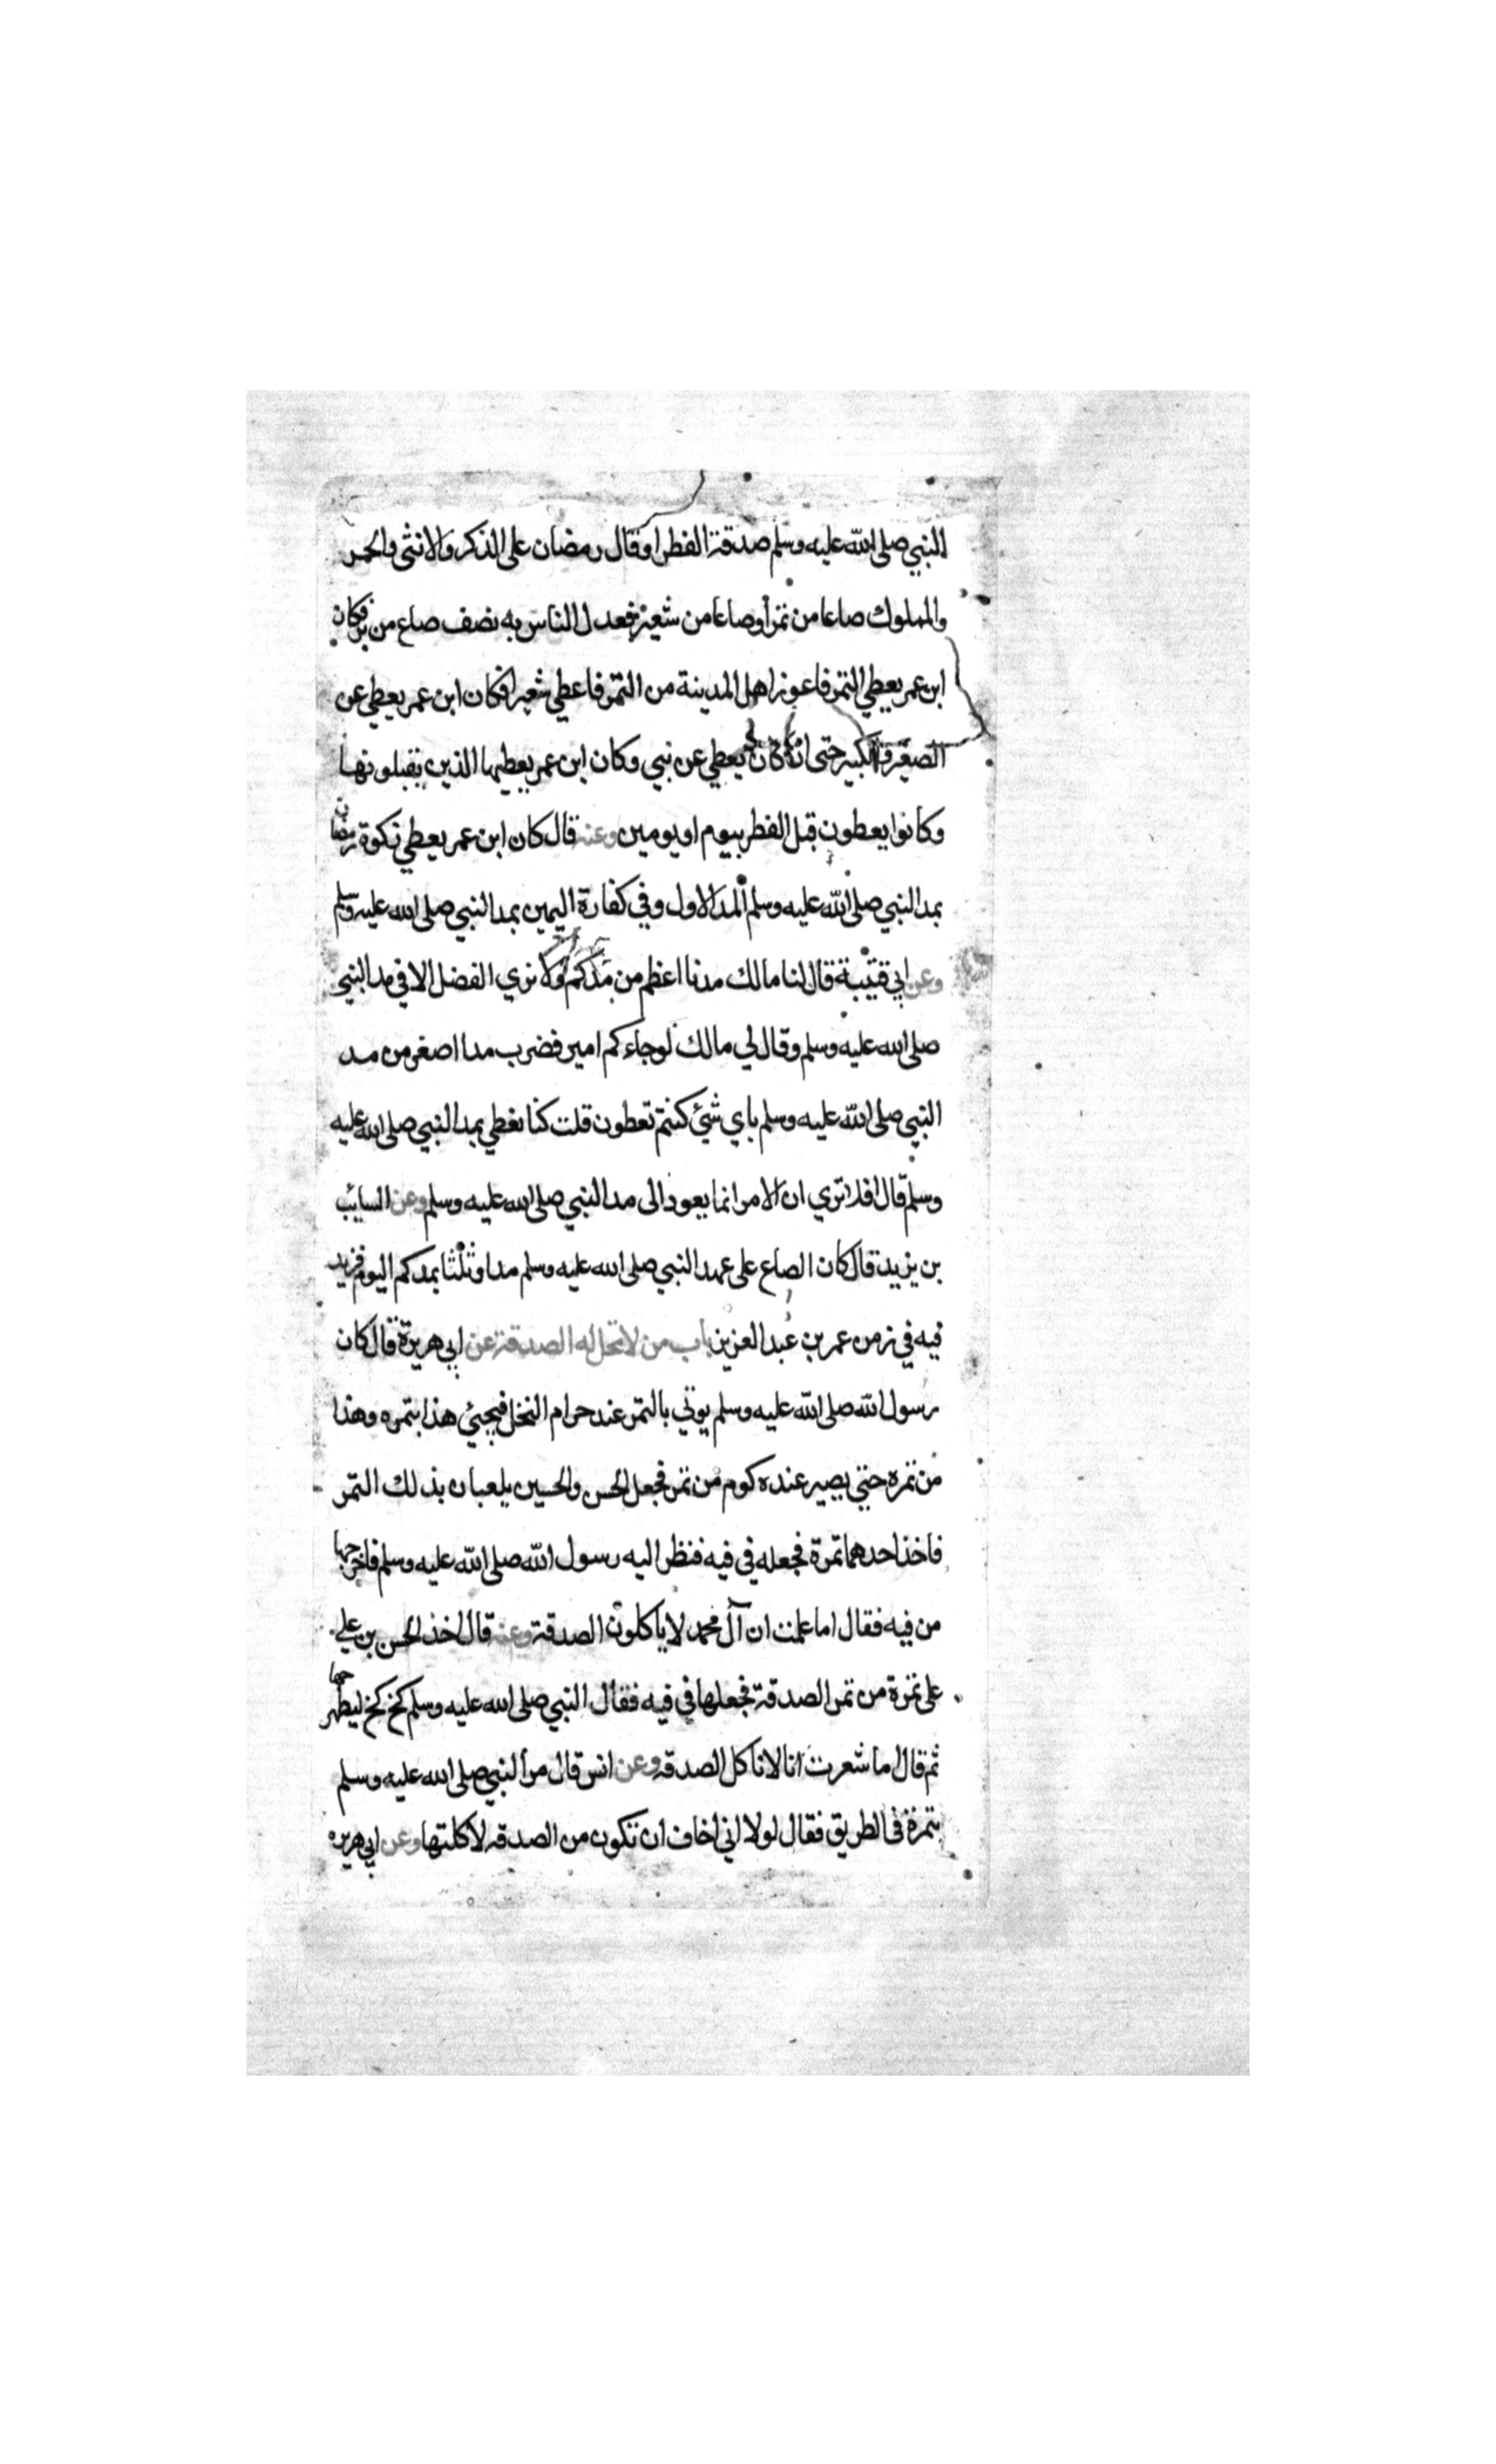 النبي صلى الله عليه وسلم صدقة الفطر او قال رمضان على الذكر والانثى والحر
والمملوك صاعا من تمر أو صاعا من شعير فعدل الناس به نصف صاع من بر فكان
ابن عمر يعطي التمر فاعوز اهل المدينة من التمر فاعطي شعيرا فكان ابن عمر يعطي عن
الصغير والكبير حتى ان كان يعطي عن نبي وكان ابن عمر يعطيها الذين يقبلونها
وكانوا يعطون قبل الفطر بيوم او يومين وعنه قال كان ابن عمر يعطي زكوة رمضان
بمد النبي صلى الله عليه وسلم المد الاول وفي كفارة اليمين بمد النبي صلى الله عليه وسلم
وعن ابي قتيبة قال لنا مالك مدنا اعظم من مدكم ولا نري الفضل الا في مد النبي
صلى الله عليه وسلم وقال لي مالك لوجاءكم امير فضرب مدا اصغر من مد
النبي صلى الله عليه وسلم باي شيئ كنتم تعطون قلت كنا نعطي بمد النبي صلى الله عليه
وسلم قال افلا تري ان الامر انما يعود الى مد النبي صلى الله عليه وسلم وعن السايب
بن يزيد قال كان الصاع على عهد النبي صلى الله عليه وسلم مدا وثلثا بمدكم اليوم فزيد
فيه في زمن عمر بن عبد العزيز باب من لا تحل له الصدقة عن ابي هريرة قال كان
رسول الله صلى الله عليه وسلم يوتي بالتمر عند حرام النخل فيجيئ هذا بتمره وهذا
من تمره حتي يصير عنده كوم من تمر فجعل الحسن والحسين يلعبان بذلك التمر
فاخذ احدهما تمرة فجعله في فيه فنظر اليه رسول الله صلى الله عليه وسلم فاخرجها
من فيه فقال اما علمت ان آل محمد لا ياكلون الصدقة وعنه قال اخذ الحسن بن علي
على تمرة من تمر الصدقة فجعلها في فيه فقال النبي صلى الله عليه وسلم كخ كخ ليطرحها
ثم قال ما شعرت انا لا ناكل الصدقه وعن انس قال مر النبي صلى الله عليه وسلم
بتمرة في الطريق فقال لولا اني اخاف ان تكون من الصدقه لاكلتها وعن ابي هريره